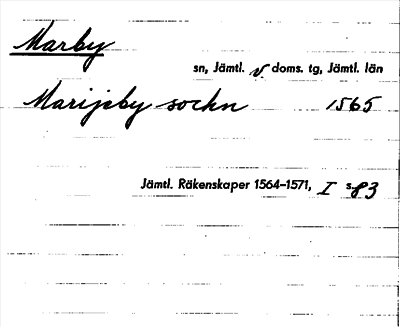 Marby
sn, Jämtl. v. doms. tg, Jämtl. län
Marijeby sockn 1565
Jämtl. Räkenskaper 1564–1571, I s. 83